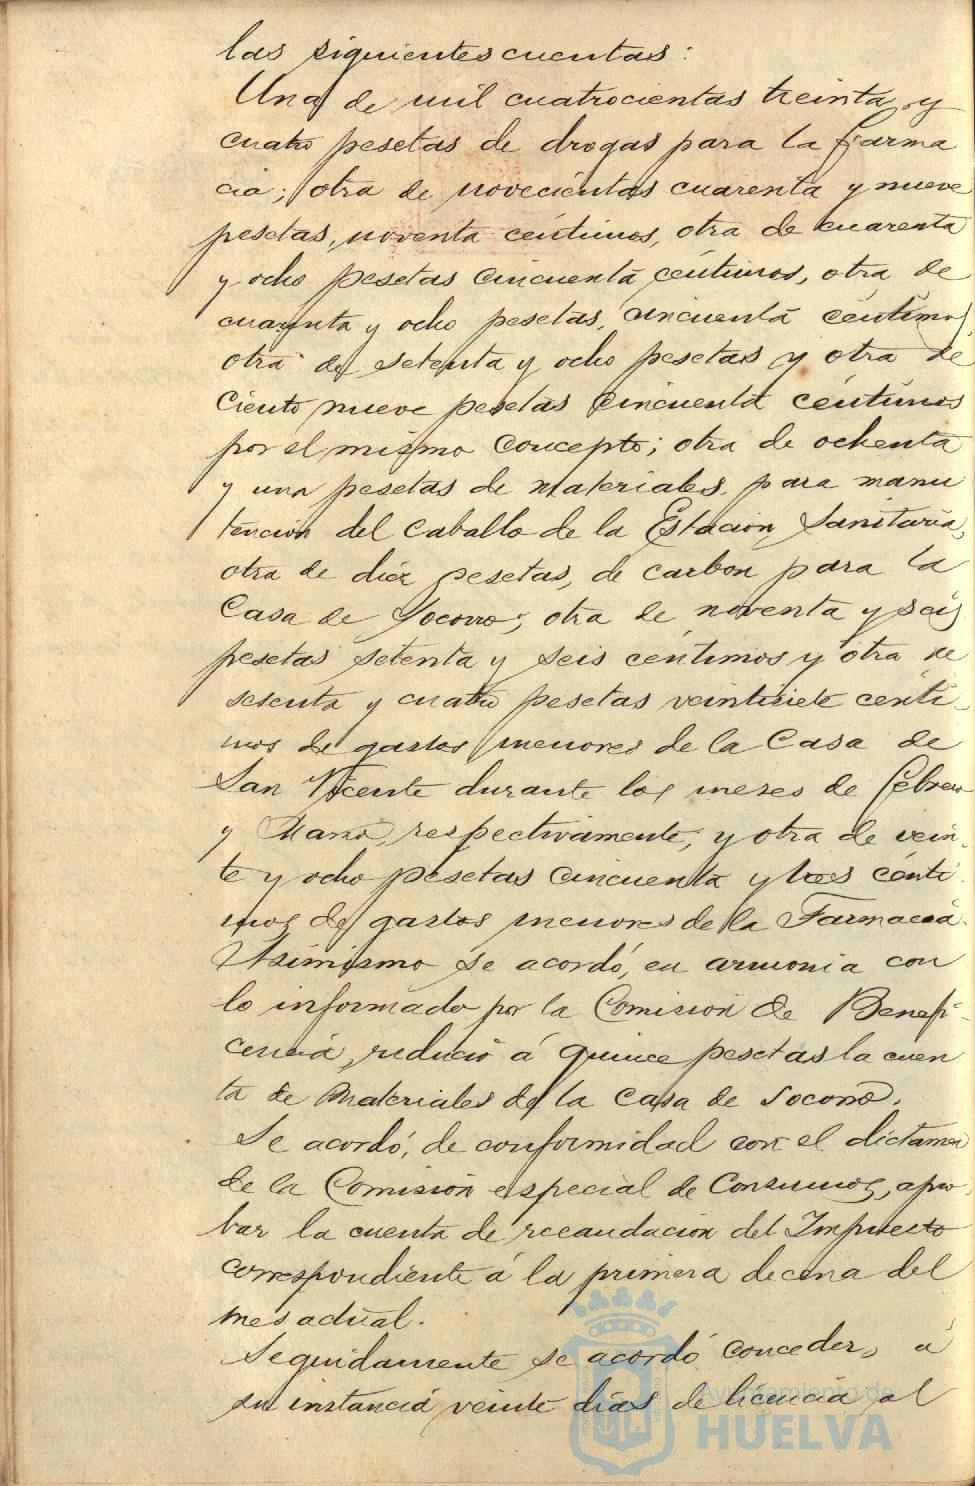 las siguientes cuentas:
Una de mil cuatrocientas treinta y
cuatro pesetas de drogas para la farma
cia; otra de novecientas cuarenta y nueve
pesetas, noventa céntimos, otra de cuarenta
y ocho pesetas cincuenta céntimos, otra de
cuarenta y ocho pesetas, cincuenta céntimos,
otra de setenta y ocho pesetas y otra de
ciento nueve pesetas cincuenta céntimos
por el mismo concepto; otra de ochenta
y una pesetas de materiales, para manu
tencion del caballo de la Estacion Sanitaria,
otra de diez pesetas, de carbon para la
Casa de Socorro; otra de noventa y seis
pesetas setenta y seis centimos y otra de
sesenta y cuatro pesetas veintisiete centi-
mos de gastos menores de la Casa de
San Vicente durante los meses de Febrero
y Marzo, respectivamente; y otra de vein-
te y ocho pesetas cincuenta y tres cénti
mos de gastos menores de la Farmacia.
Asimismo se acordó, en armonia con
lo informado por la Comision de Benefi-
cencia, reducir á quince pesetas la cuen
ta de materiales de la Casa de Socorro.
Se acordó, de conformidad con el dictamen
de la Comisión especial de Consumos, apro
bar la cuenta de recaudacion del Impuesto
correspondiente á la primera decena del
mes actual.
Seguidamente se acordó conceder, á
su instancia veinte dias de licencia al
Ayuntamiento de
HUELVA